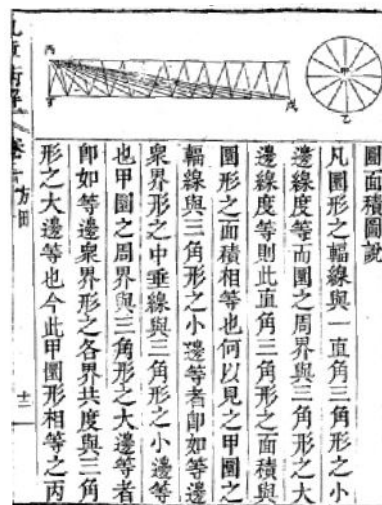 圓面積圖説
凡圓形之輻線與一直角三角形之小
邊線度等而圓之周界與三角形之大
邊線度等則此直角三角形之面積與
圓形之面積相等也何以見之甲圓之
輻線與三角形之小邊等者卽如等邊
衆界形之中垂線與三角形之小邊等
也甲圓之周界與三角形之大邊等者
卽如等邊衆界形之各界共度與三角
形之大邊等也今此甲圓形相等之丙
方田
十二
甲
乙
丙
丁
戊